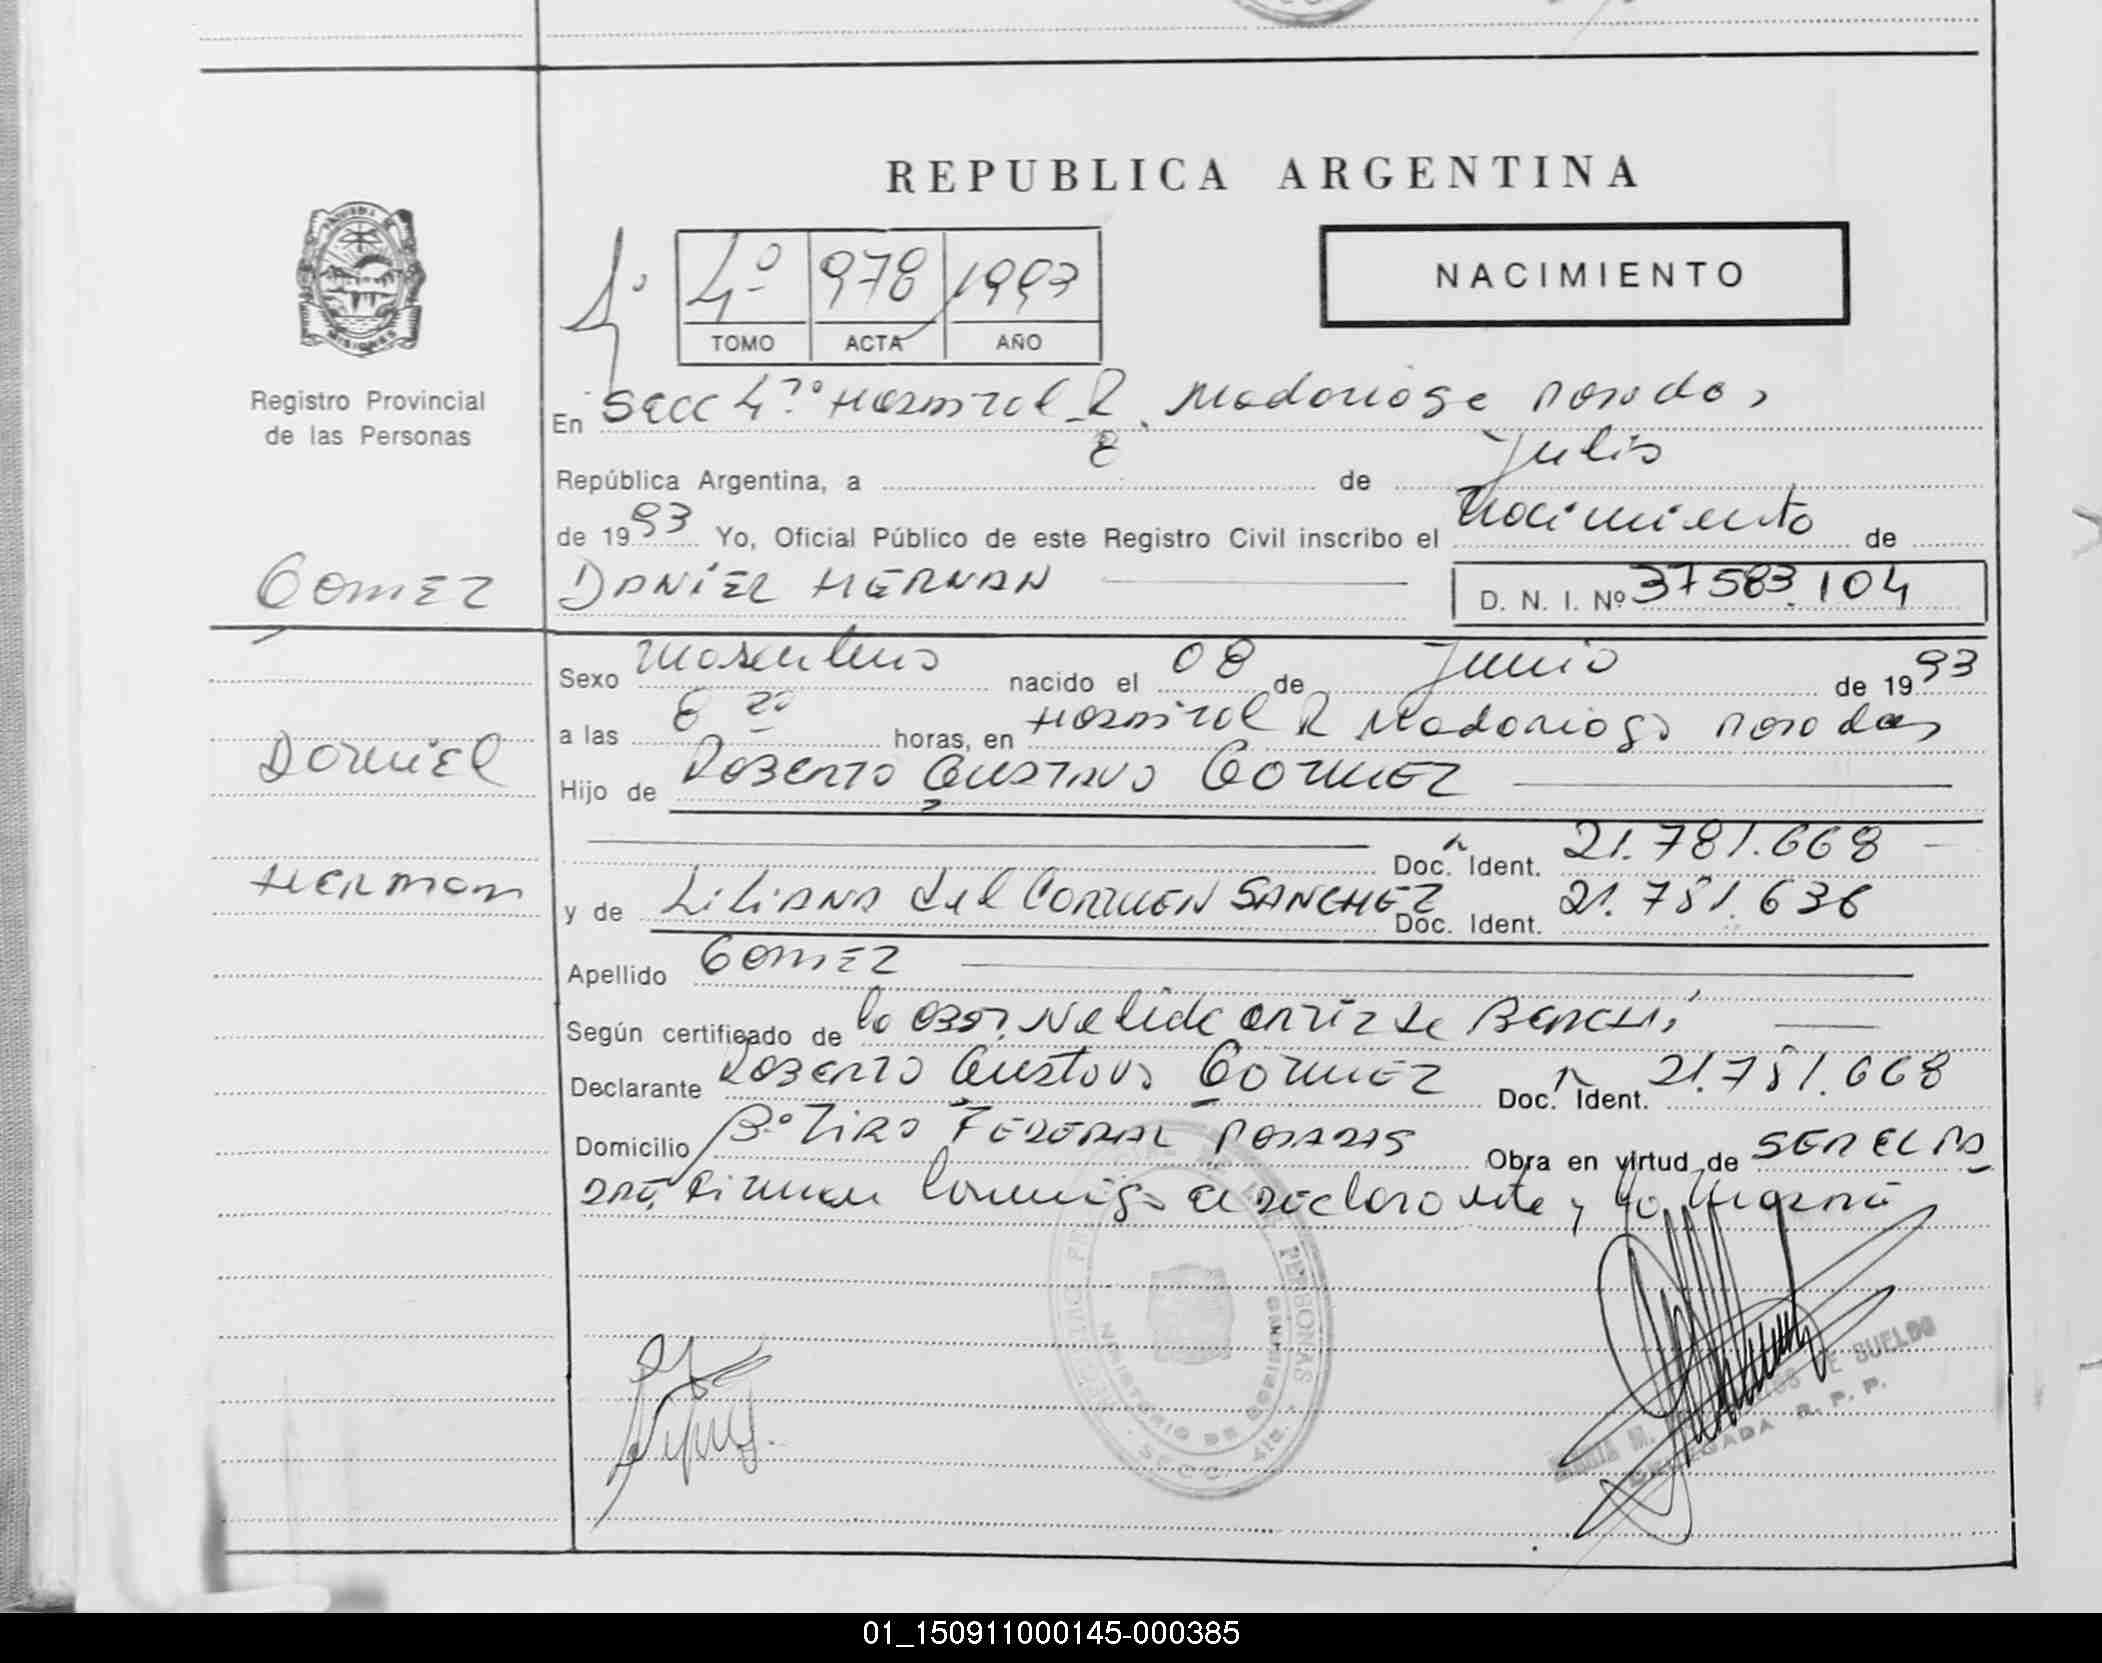 REPUBLICA ARGENTINA
NACIMIENTO
4º 978 1993
TOMO ACTA AÑO
Registro Provincial
de las Personas
En Secc 4º Hospital R. Madariaga Posadas,
República Argentina, a 8 de Julio
de 1993 Yo, Oficial Público de este Registro Civil inscribo el Nacimiento de
GOMEZ
DANIEL HERNAN
D. N. I. Nº 37583.104
Sexo Masculino nacido el 08 de Junio de 1993
a las 8 horas, en Hospital R Madariaga Posadas
Daniel
Hijo de Roberto Gustavo GOMEZ
Doc. Ident. 21.781.668
Hernan
y de Liliana del Carmen SANCHEZ Doc. Ident. 21.781.636
Apellido GOMEZ
Según certificado de la Obst. Nelida
Declarante Roberto Gustavo Gomez Doc. Ident. 21.781.668
Domicilio Bº Tiro Federal Posadas Obra en virtud de
Firman conmigo el declarante y
REGISTRO PROVINCIAL DE LAS PERSONAS
MINISTERIO DE GOBIERNO
SECC. 4ta.
MARIA M. DE SUELDO
DELEGADA R. P. P.
01_150911000145-000385